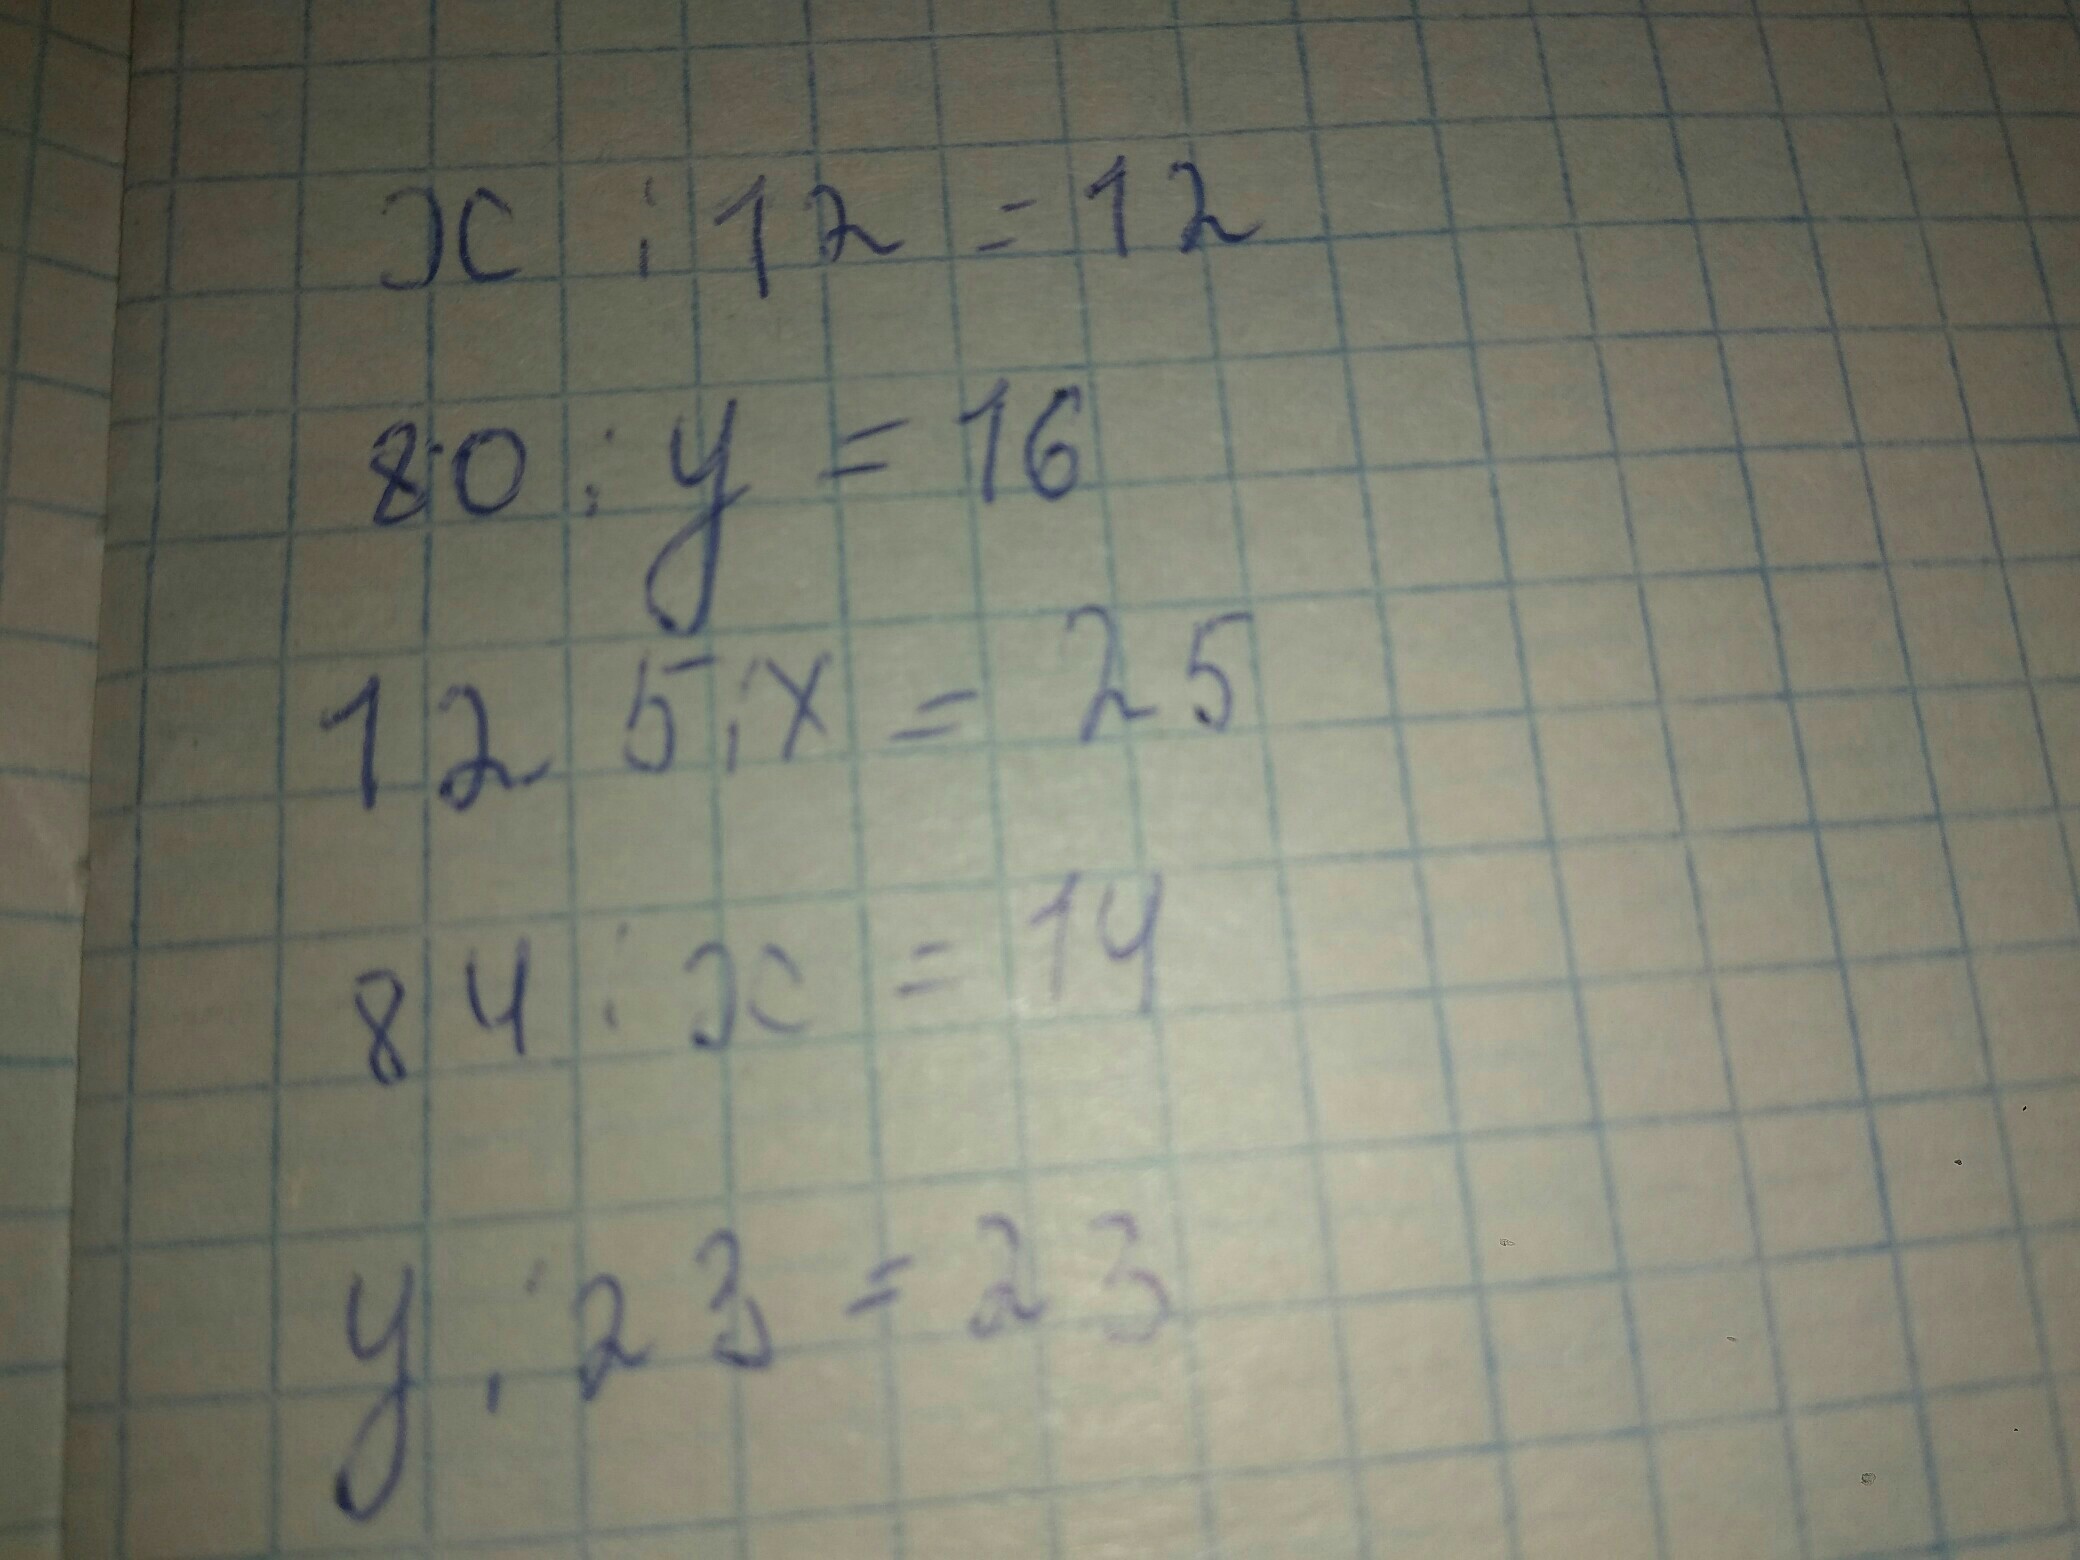 x : 12 = 12
80 : y = 16
125 : x = 25
84 : x = 14
y : 23 = 23